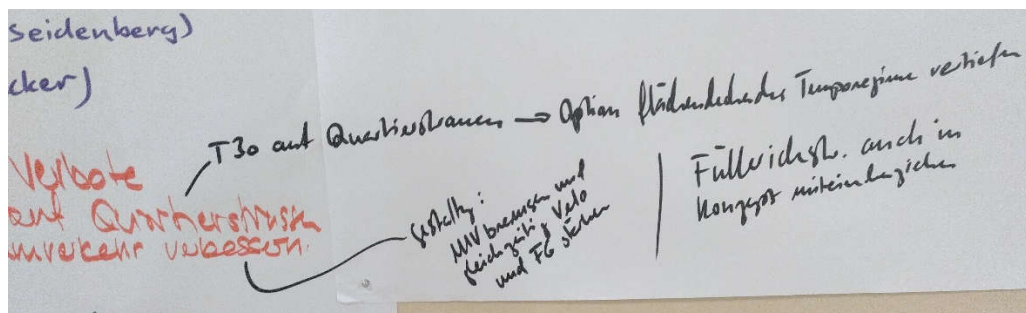 seidenberg)
cker)
Verbote
auf Quartierstrassen
mverkehr verbessern.
T30 auf Quartierstrassen → Option flächendeckendes Temporegime vertiefen
Gestaltg:
MIV bremsen und
gleichzeitig Velo
und FG stärken
Füllerichstr. auch in
Konzept miteinbeziehen